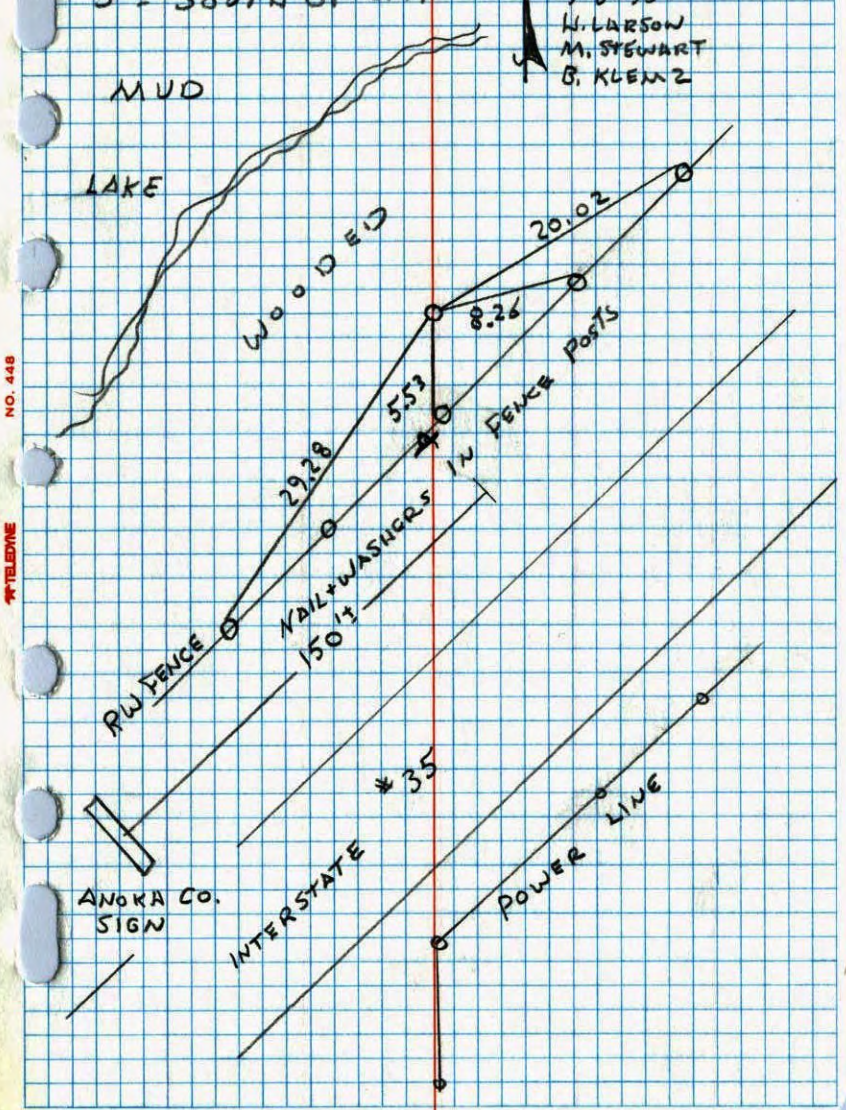 W. LARSON
M. STEWART
B. KLEMZ
MUD
LAKE
WOODED
20.02
8.26
5.53
29.28
NAIL + WASHERS IN FENCE POSTS
150'±
RW FENCE
INTERSTATE # 35
POWER LINE
ANOKA CO.
SIGN
NO. 448
TELEDYNE